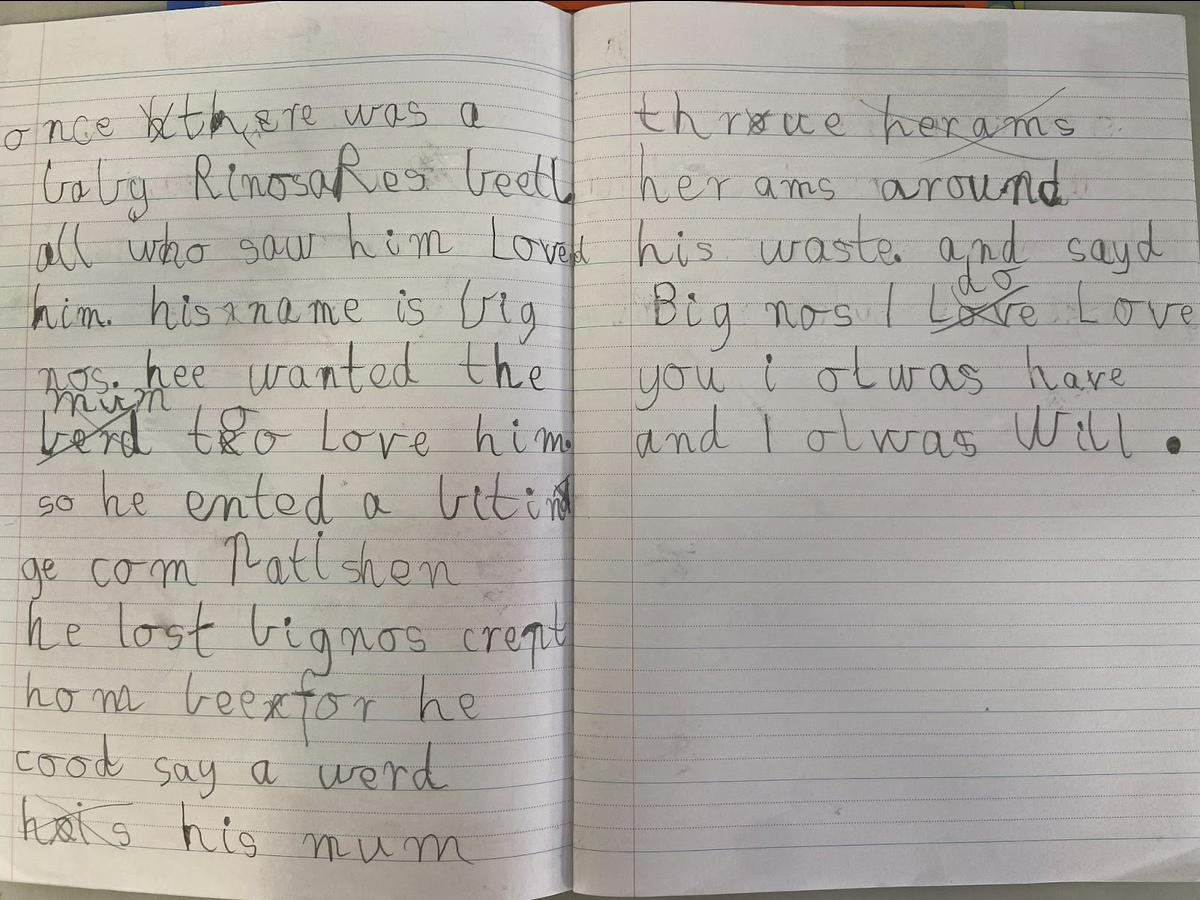 once there was a
baby RinosaRes beetl
all who saw him Loved
him. his name is big
nos. hee wanted the
mum
berd to Love him.
so he ented a bitin
ge com Patishen
he lost bignos crept
hom beefor he
cood say a werd
his mum
thruue herams
her ams around
his waste. and sayd
do
Big nos I Love Love
you i olwas have
and I olwas Will.